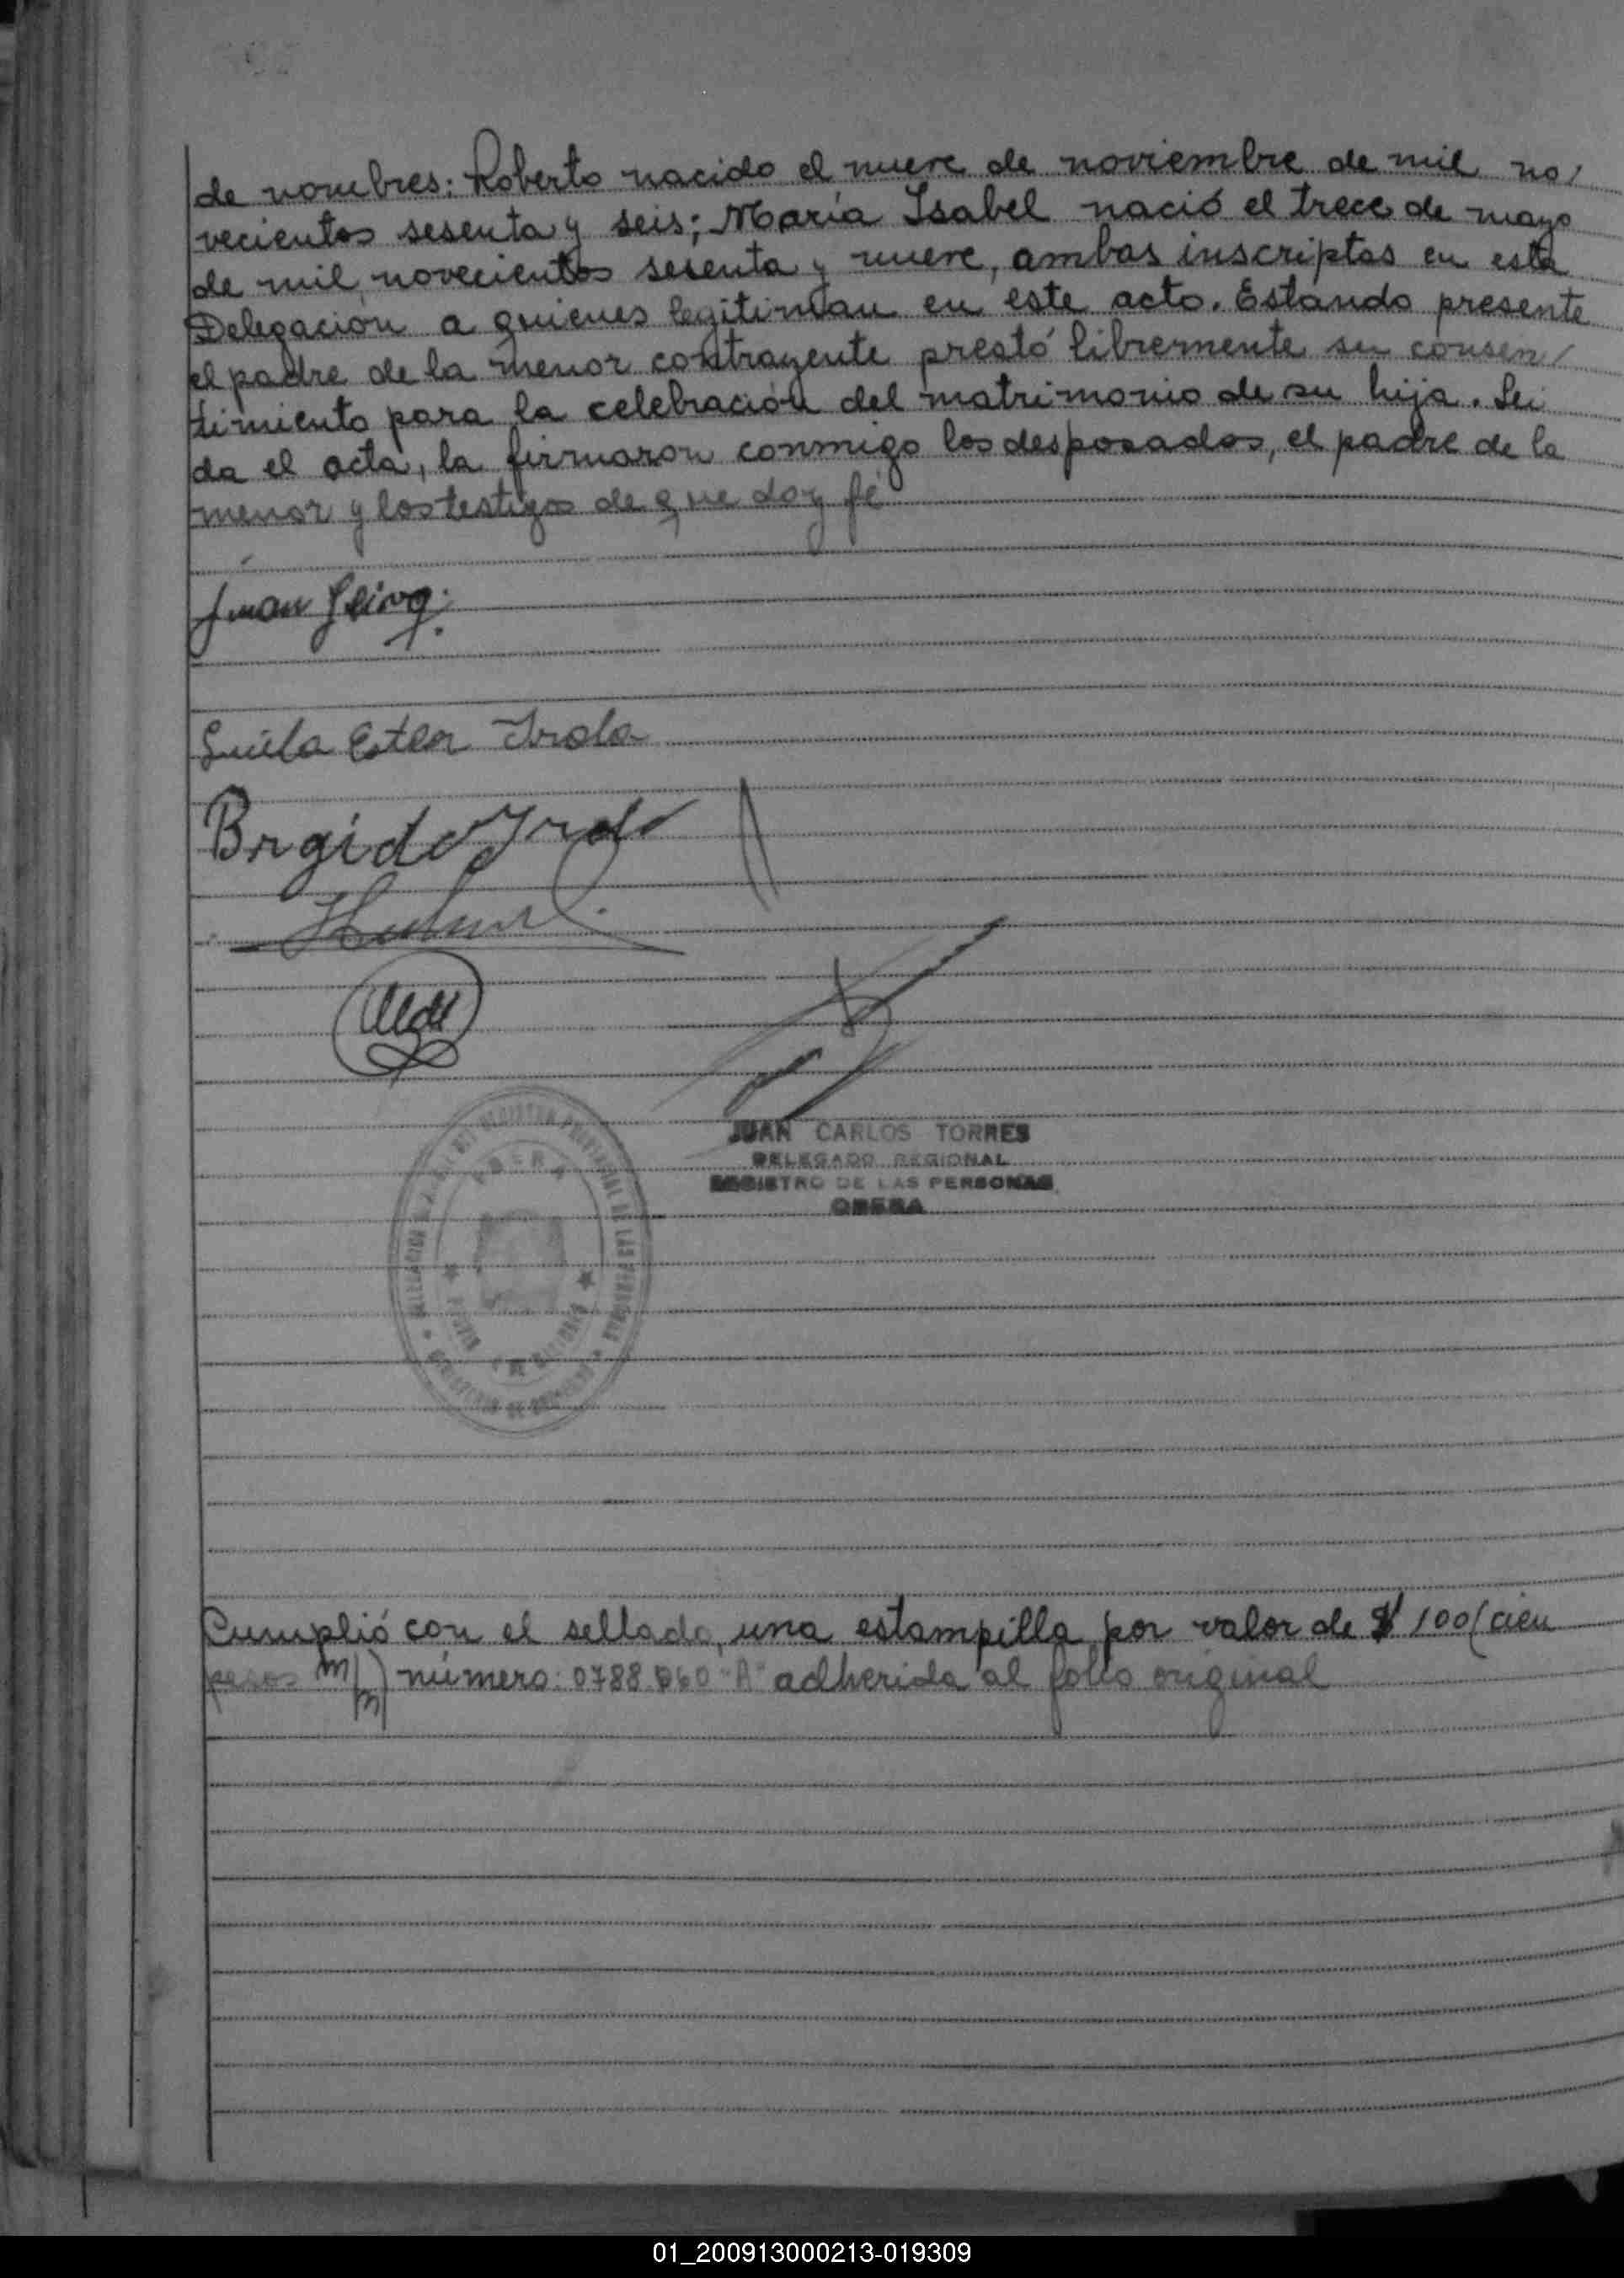 de nombres: Roberto nacido el nueve de noviembre de mil no/
vecientos sesenta y seis; María Isabel nació el trece de mayo
de mil novecientos sesenta y nueve, ambas inscriptas en esta
Delegación a quienes legitiman en este acto. Estando presente
el padre de la menor contrayente prestó libremente su consen/
timiento para la celebración del matrimonio de su hija. Lei
da el acta, la firmaron conmigo los desposados, el padre de la
menor y los testigos de que doy fé
Juan
Ester Irala
JUAN CARLOS TORRES
DELEGADO REGIONAL
REGISTRO DE LAS PERSONAS
OBERA
OBERA
Cumplió con el sellado, una estampilla por valor de $ 100 (cien
pesos m/n) número: 0788.060 "A" adherida al folio original
01_200913000213-019309